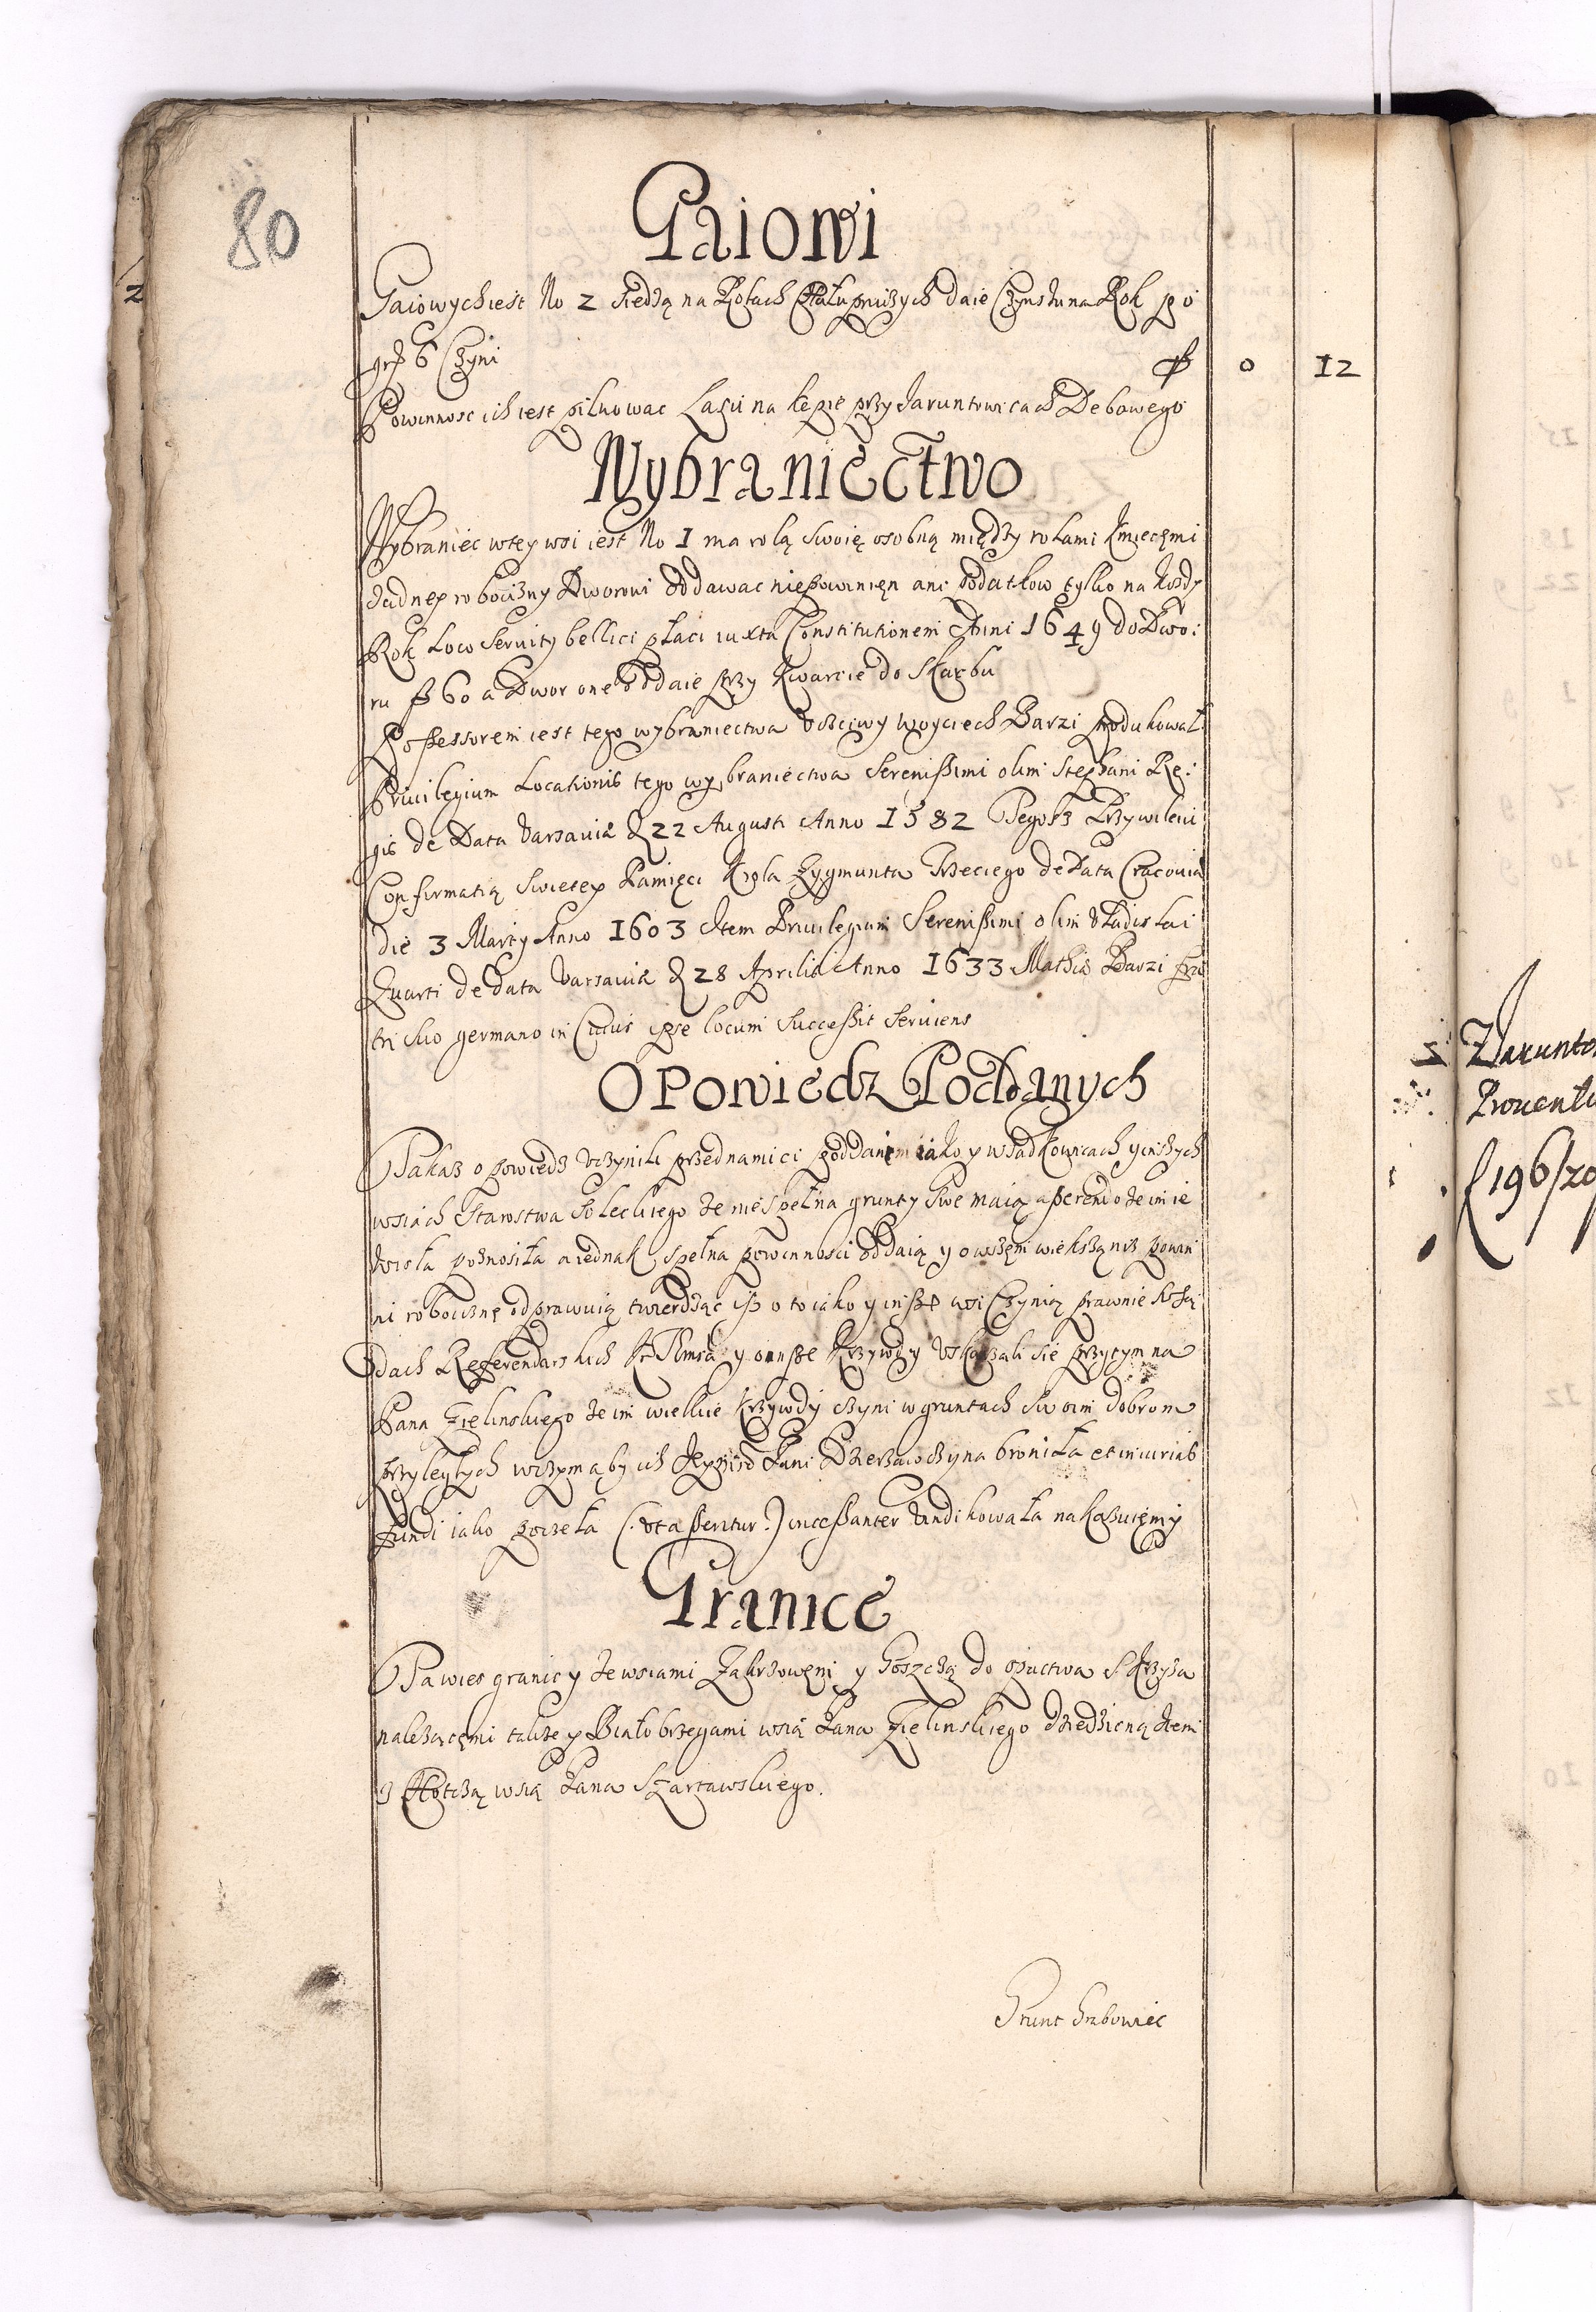 80
Gaiowi
Gaiowych iest No 2 siedzą na Rolach Chałupniczych daie Czynszu na Rok po
gr 6 Czyni fl 0 12
Powinnosc ich iest pilnowac Lasu na kępie przy Jaruntowicach Debowego
Wybraniectwo
Wybraniec w tey wsi iest No 1 ma rolą swoię osobną między rolami kmiecęmi
Zadney robocizny Dworowi oddawac niepowinięn ani podatkow tylko na kozdy
Rok Loco Servity bellici płaci iuxta Constitutionem Anni 1649 do Dwo:
ru fl 60 a Dwor one oddaie przy kwarcie do Skarbu
Possessorem iest tego wybraniectwa Uczciwy Woyciech Barzi produkowal
Privilegium Locationis tego wybraniectwa Serenissimi olim Stephani Re:
gis de Data Varsaviæ d 22 Augusti Anno 1582 Tegosz Przywileiu
Confirmatią Swietey Pamięci Krola Zygmunta Trzeciego de Data Cracoviæ
die 3 Marty Anno 1603 Item Privilegium Serenissimi olim Vladislai
Quarti de data Varsaviæ d 28 Aprilis Anno 1633 Mathiæ Barzi fra
tri suo germano in Cuius ipse locum Successit Serviens
Opowiedz Poddanych
Takaz opowiedz uczynili przed nami ci poddani iako y w Sadkowicach y inszych
wsiach Starostwa Soleckiego ze nie spełna grunty swe maią asserendo ze im ie
Wisła poznosiła a iednak spełna powinnosci oddaią y owszęm wiekszą nisz powin
ni robociznę odprawuią twierdząc isz o to iako y insze wsi Czynią prawnie w Są
dach Referendarskich y o insze krzywdy Uskarzali sie przytym na
Pana Zielinskiego ze im wielkie krzywdy czyni w gruntach swoim dobrom
przyległych w czym aby ich Pani Dzerzawczyna broniła et iniurias
fundi iako poczeła (: ut asseritur :) incessanter Vindikowała nakazuięmy
Granice
Ta wies graniczy ze wsiami Zakrzowęm y Goszczą do opactwa S Krzyza
nalezącęmi takze y Białobrzegami wsią Pana Zielinskiego dziedzicną item
z Chotczą wsią Pana Szartawskiego.
Grunt Grabowiec
Zarunto
Prouentu
(196/20